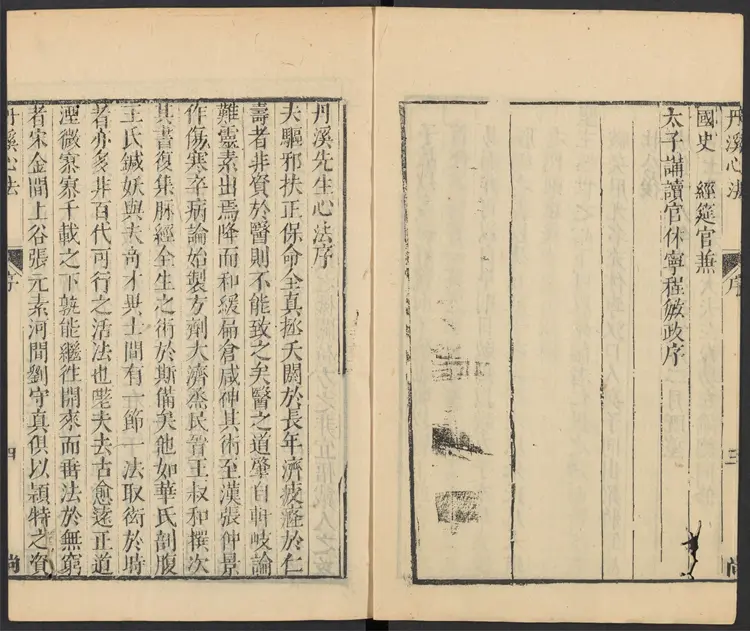 丹溪心法 序 三 尚
國史 經筵官兼
太子講讀官休寧程敏政序
丹溪先生心法序
夫驅邪扶正保命全真拯夭閼於長年濟疲癃於仁
壽者非資於醫則不能致之矣醫之道肇自軒岐論
難靈素出焉降而和緩扁倉咸神其術至漢張仲景
作傷寒卒病論始製方劑大濟烝民晉王叔和撰次
其書復集脉經全生之術於斯備矣他如華氏剖腹
王氏鍼妖與夫奇才異士間有一節一法取衒於時
者亦多非百代可行之活法也嗟夫去古愈遠正道
湮微寥寥千載之下孰能繼往開來而垂法於無窮
者宋金間上谷張元素河間劉守真俱以穎特之資
丹溪心法 序 四 尚